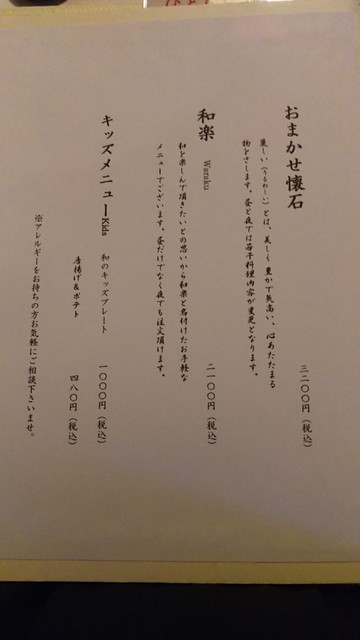 おまかせ懐石
麗しい（うるわしい）とは、美しく豊かで気高い、心あたたまる
物をさします。昼と夜では若干料理内容が変更となります。
三二〇〇円（税込）
和楽 Waraku
和を楽しんで頂きたいとの思いから和楽と名付けたお手軽な
メニューでございます。昼だけでなく夜でも注文頂けます。
二一〇〇円（税込）
キッズメニューKids
和のキッズプレート 一〇〇〇円（税込）
唐揚げ＆ポテト 四八〇円（税込）
※アレルギーをお持ちの方お気軽にご相談下さいませ。